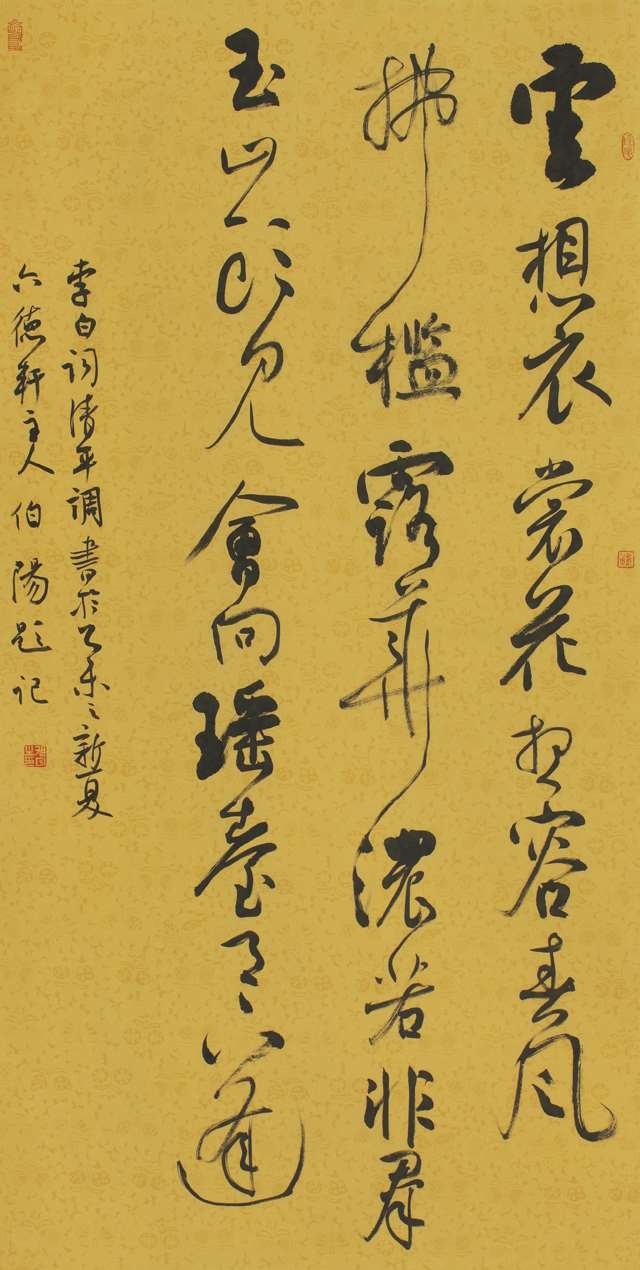 雲想衣裳花想容春風
拂檻露華濃若非羣
玉山頭見會向瑶臺月下逢
李白詞清平調書於乙未之新夏
六德軒主人伯陽題記